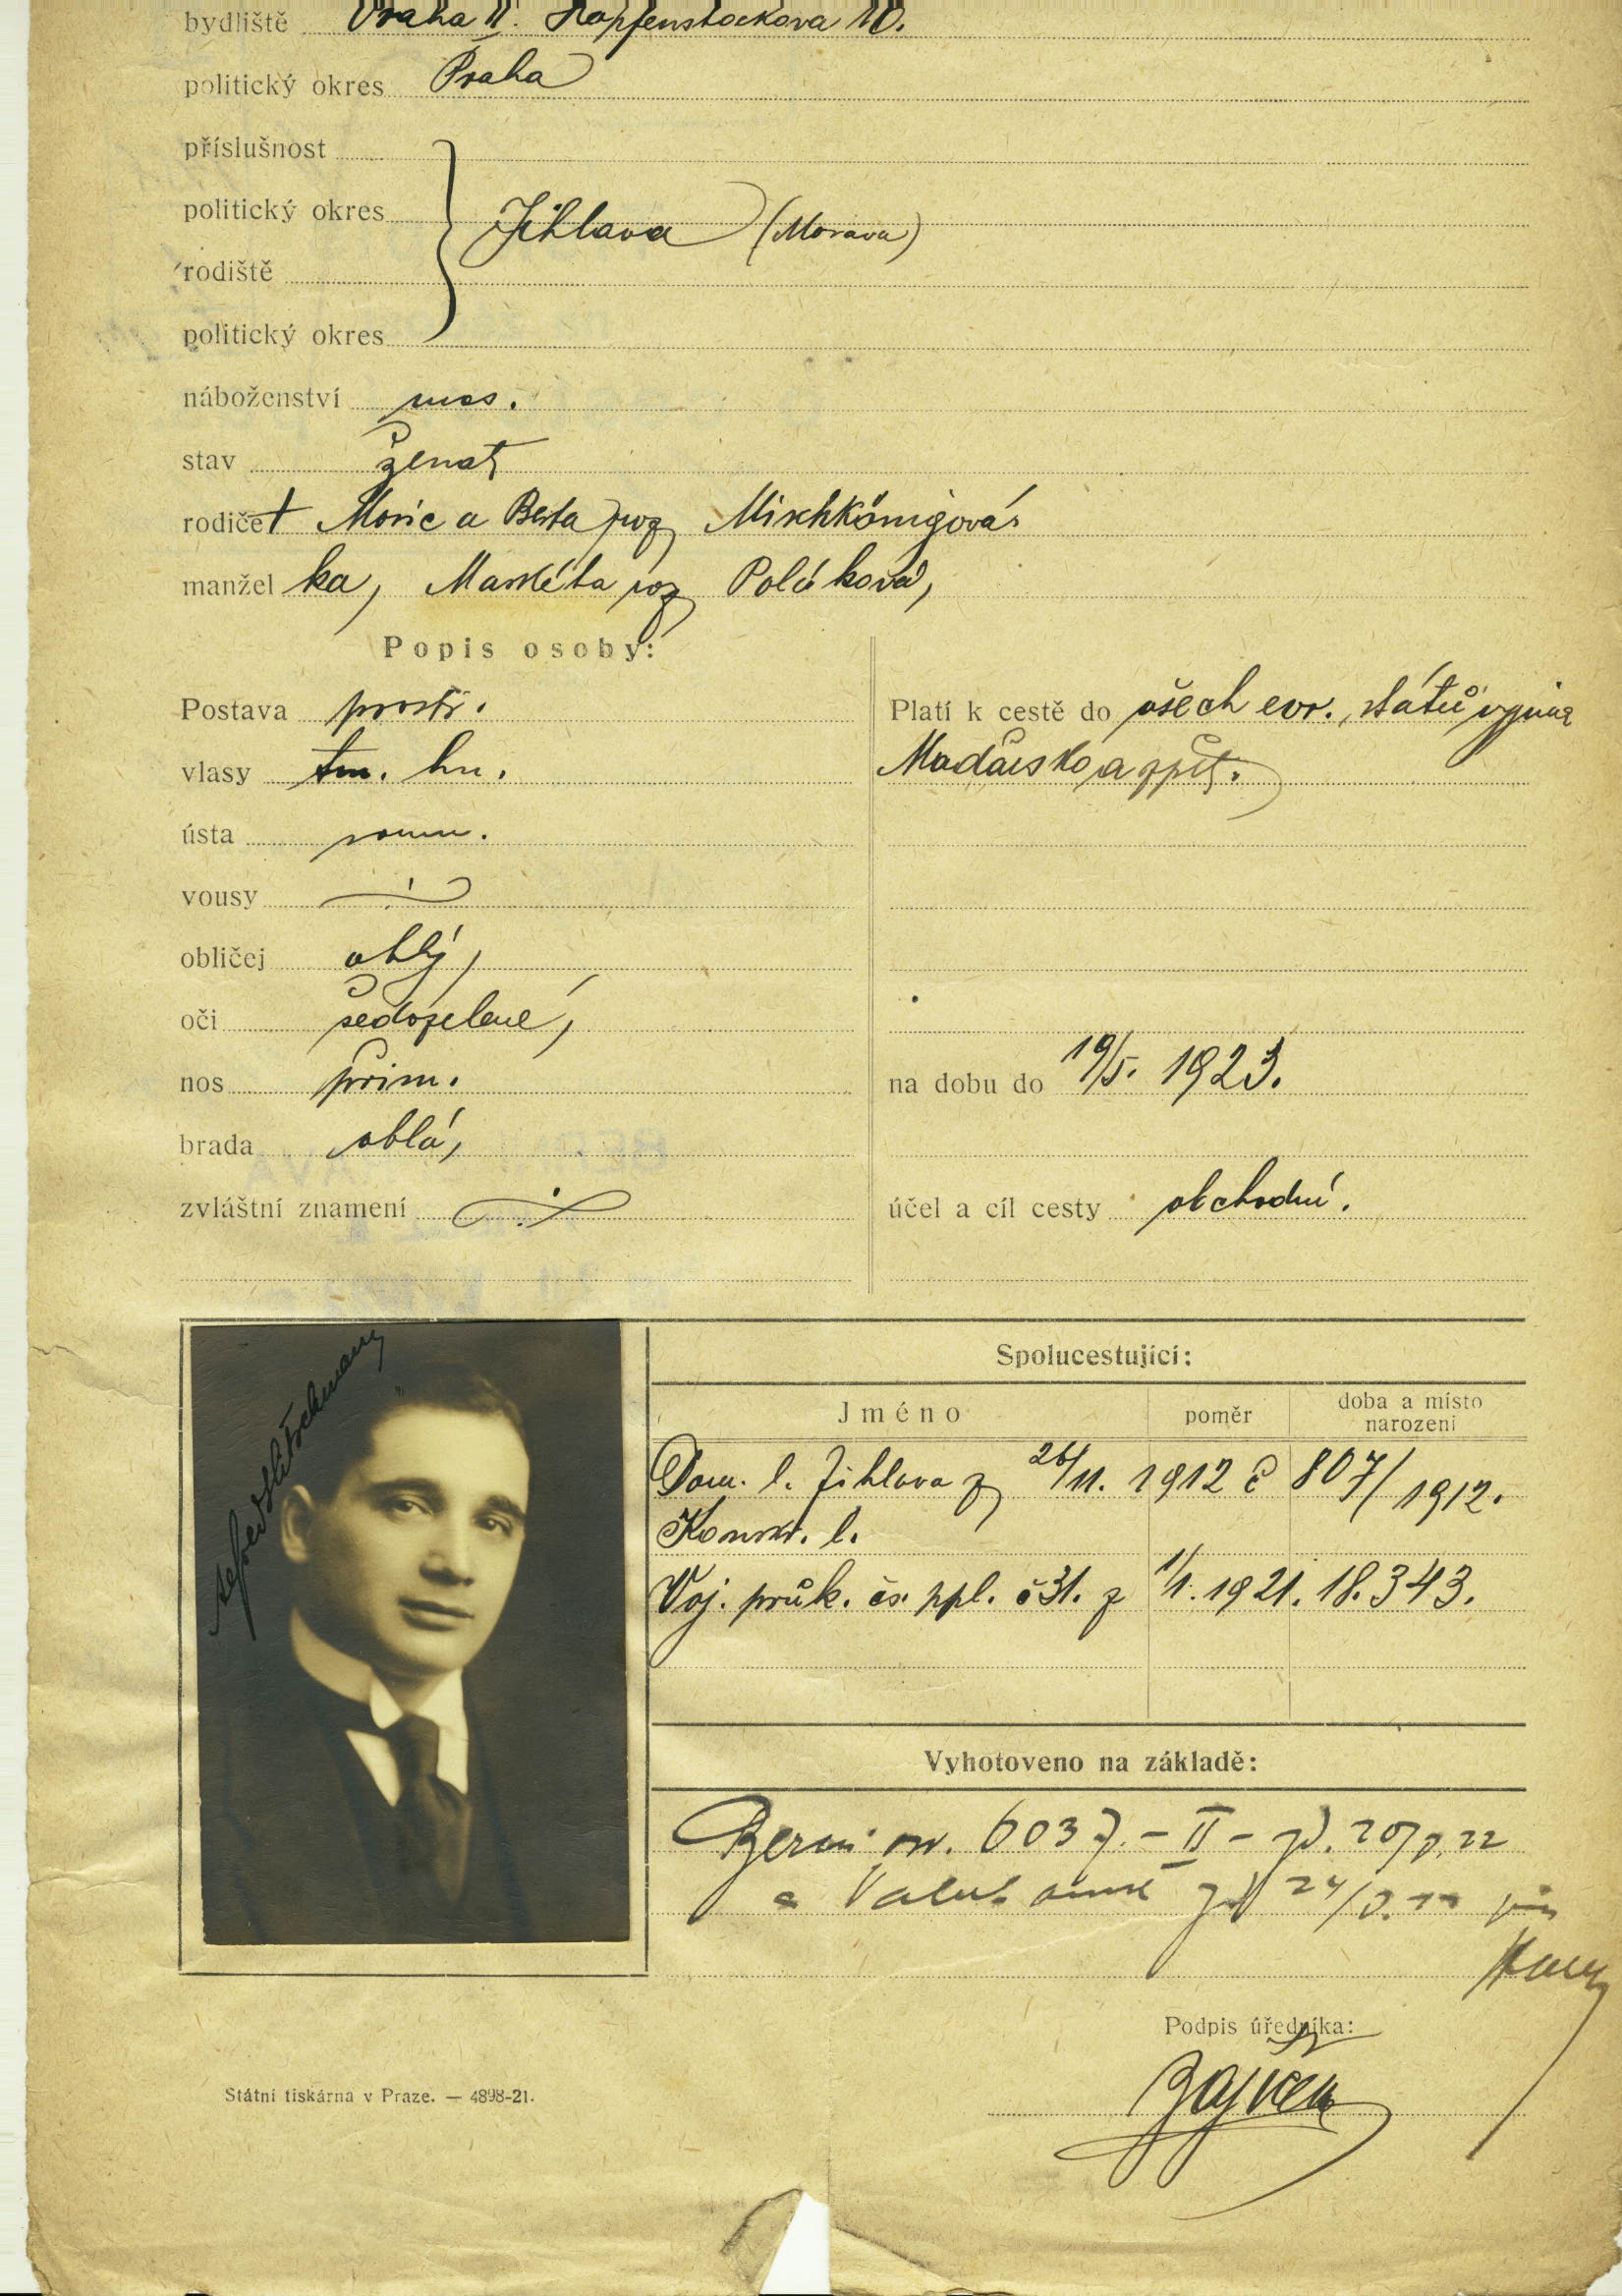 bydliště Praha II. Hopfenstockova 10.
politický okres Praha
příslušnost
politický okres Jihlava (Morava)
rodiště
politický okres
náboženství mos.
stav ženat
rodiče † Moric a Berta roz Mischkönigová
manžel ka, Markéta roz Poláková,
Popis osoby:
Postava prostř.
vlasy tm. hn.
ústa soum.
vousy
obličej oblý,
oči šedozelené,
nos přím.
brada oblá,
zvláštní znamení
Platí k cestě do všech evr. států vyjma
Maďarsko a zpět.
na dobu do 19/5. 1923.
účel a cíl cesty obchodní.
Spolucestující:
Jméno poměr doba a místo
narození
Dom. l. Jihlava z 26/11. 1912 č 807/1912.
Konskr. l.
Voj. průk. čs. ppl. č 31. z 1/1. 1921. 18.343.
Vyhotoveno na základě:
Berní 6037. - II -
24/
Podpis úředníka:
Státní tiskárna v Praze. — 4898-21.